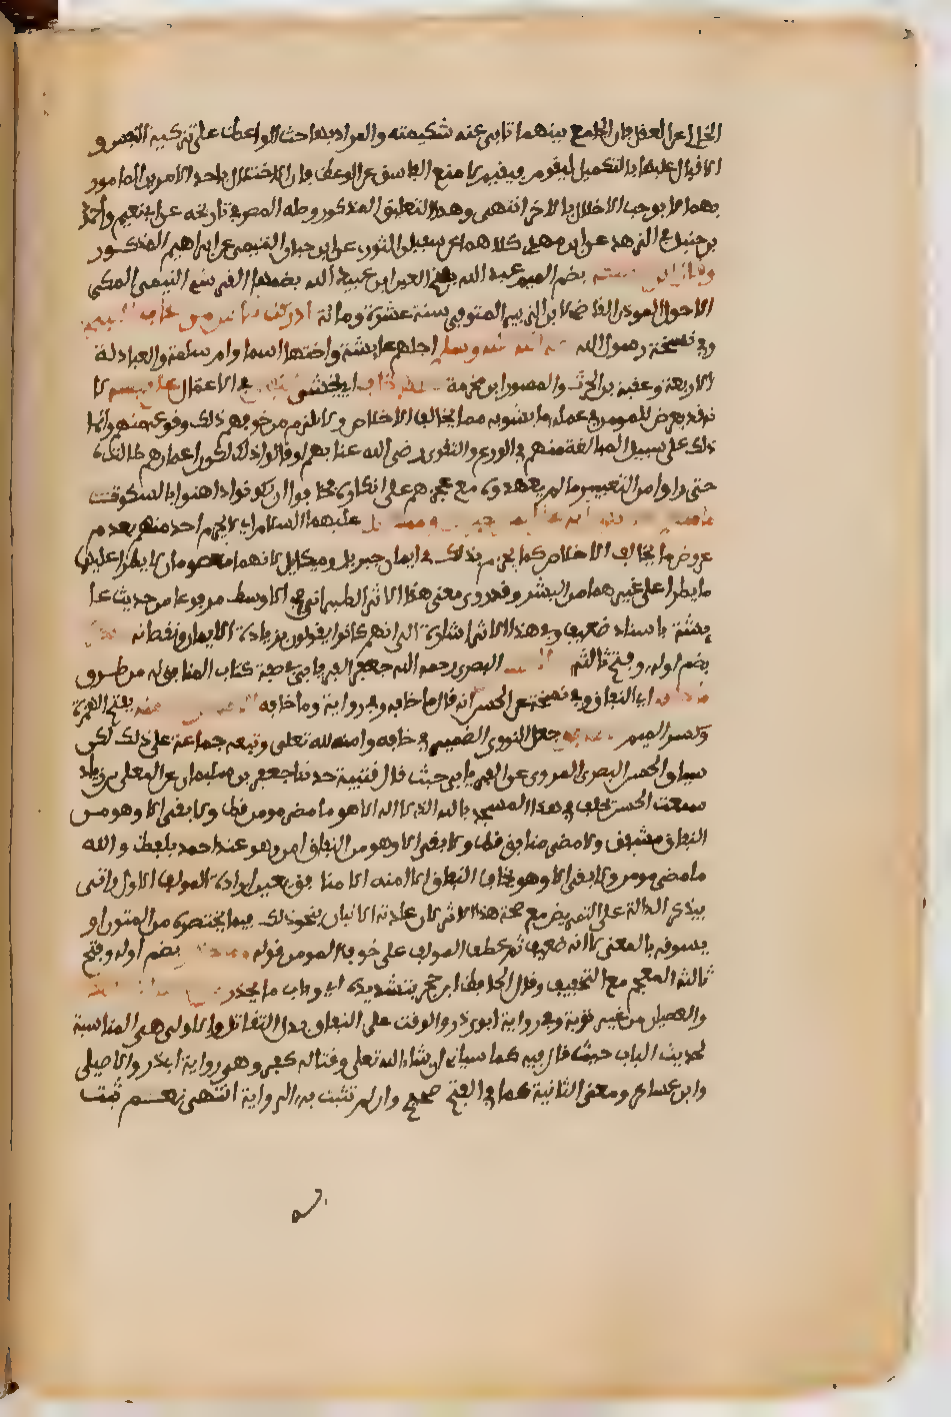 الخالي عن العقل فإن الجامع بينهما تابى عنه شكيمته والمراد بها حث الواعظ على تزكية النفس و
الاقبال عليها بالتكميل ليقوم فيقيم لا منع الفاسق عن الوعظ فإن الاختلال باحد الامرين المامور
بهما لا يوجب الاخلال بالاخر انتهى وهذا التعليق المذكور وصله المص في تاريخه عن ابي نعيم واحمد
بن حنبل في الزهد عن ابن مهدي كلاهما عن سفيان الثوري عن ابي حيان التيمي عن ابراهيم المذكور
وقال ابن مليكة بضم الميم عبد الله بفتح العين ابن عبيد الله بضمها القرشي التيمي المكي
الاحول الموذن القاضي لابن الزبير المتوفى سنة عشرة ومائة ادركت ثلاثين من اصحاب النبي
وفي نسخة رسول الله صلى الله عليه وسلم اجلهم عايشة واختها اسما وام سلمة والعبادلة
الاربعة وعقبة بن الحرث والمسور ابن مخرمة كلهم يخاف اي يخشى النفاق في الاعمال على نفسه لا
نه قد يعرض للمومن في عمله ما يشوبه مما يخالف الاخلاص ولا يلزم من خوفهم ذلك وقوعه منهم وانما
ذلك على سبيل المبالغة منهم في الورع والتقوى رضي الله عنا بهم او قالوا ذلك لكون اعمارهم طالت
حتى راوا من التغيير ما لم يعهدوه مع عجزهم على انكاره فخافوا ان يكونوا داهنوا بالسكوت
ما منهم احد يقول انه على ايمان جبريل وميكائيل عليهما السلام اي لا يجزم احد منهم بعدم
عروض ما يخالف الاخلاص كما يجزم بذلك في ايمان جبريل وميكايل لانهما معصومان لا يطرا عليهما
ما يطرا على غيرهما من البشر وقد روى معنى هذا الاثر الطبراني في الاوسط مرفوعا من حديث عا
يشة باسناد ضعيف وفي هذا الاثر اشارة الى انهم كانوا يقولون بزيادة الايمان ونقصانه ويذكر
بضم اوله وفتح ثالثه عن الحسن البصري رحمه الله جعفر الفريابي في صفة كتاب المنافق له من طرق
ما خافه اي النفاق وفي نسخة عن الحسن انه قال ما خافه وفي رواية وما خافه الا مومن ولا امنه بفتح الهمزة
وكسر الميم الا منافق جعل النووي الضمير في خافه وامنه لله تعلى وتبعه جماعة على ذلك لكن
سياق الحسن البصري المروي عن الفريابي حيث قال قتيبة حدثنا جعفر بن سليمان عن المعلى بن زياد
سمعت الحسن يحلف في هذا المسجد بالله الذي لا اله الا هو ما مضى مومن قط ولا بقي الا وهو من
النفاق مشفق ولا مضى منافق قط ولا بقي الا وهو من النفاق امن وهو عند احمد بلفظ والله
ما مضى مومن ولا بقي الا وهو يخاف النفاق ولا امنه الا منافق يعين ارادة المولف الاول واتى
بيذكر الدالة على التمريض مع صحة هذا الاثر لان عادته الاتيان بنحو ذلك فيما يختصره من المتون او
يسوقه بالمعنى لا انه ضعيف ثم عطف المولف على خوف المومن قوله وما يحذر بضم اوله وفتح
ثالثه المعجم مع التخفيف وقال الحافظ ابن حجر بتشديده اي وباب ما يحذر من الاصرار على التقاتل
والعصيان من غير توبة وفي رواية ابوي ذر والوقت على النفاق بدل التقاتل والاولى هي المناسبة
لحديث الباب حيث قال فيه كما سياتي ان شاء الله تعلى وقتاله كفر وهو رواية ابي ذر والاصيلي
وابن عساكر ومعنى الثانية كما في الفتح صحيح وان لم تثبت به الرواية انتهى نعم ثبت